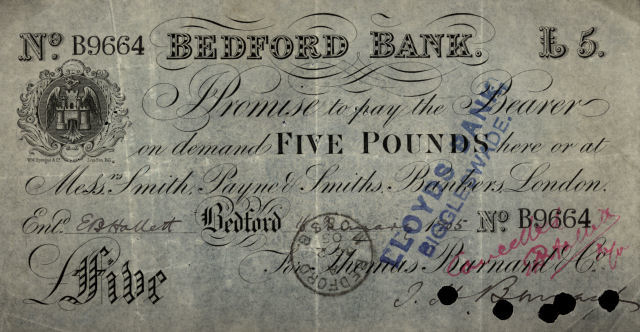 No. B9664 BEDFORD BANK. £5.
I Promise to pay the Bearer
on demand FIVE POUNDS here or at
Messrs. Smith, Payne & Smiths, Bankers, London.
Entd. E B Hallett Bedford No. B9664
For Thomas Barnard & Co.
£Five
LLOYDS BANK
BIGGLESWADE.
Cancelled
BEDFORD